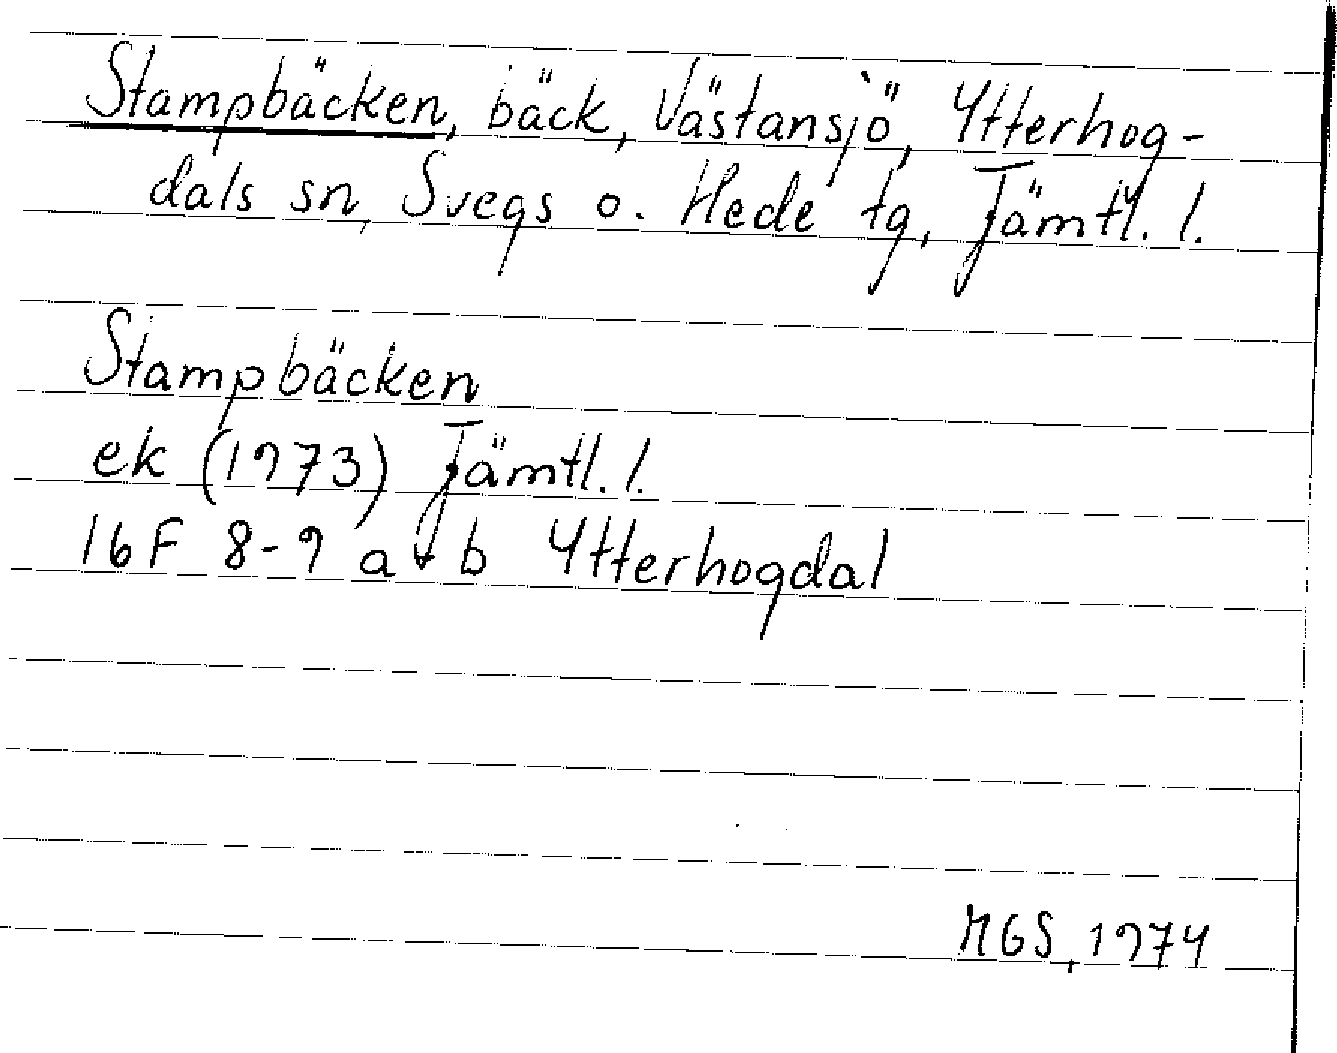 Stampbäcken, bäck, Västansjö, Ytterhog-
dals sn, Svegs o. Hede tg, Jämtl. l.
Stampbäcken
ek (1973) Jämtl. l.
16F 8-9 a+b Ytterhogdal
MGS, 1974